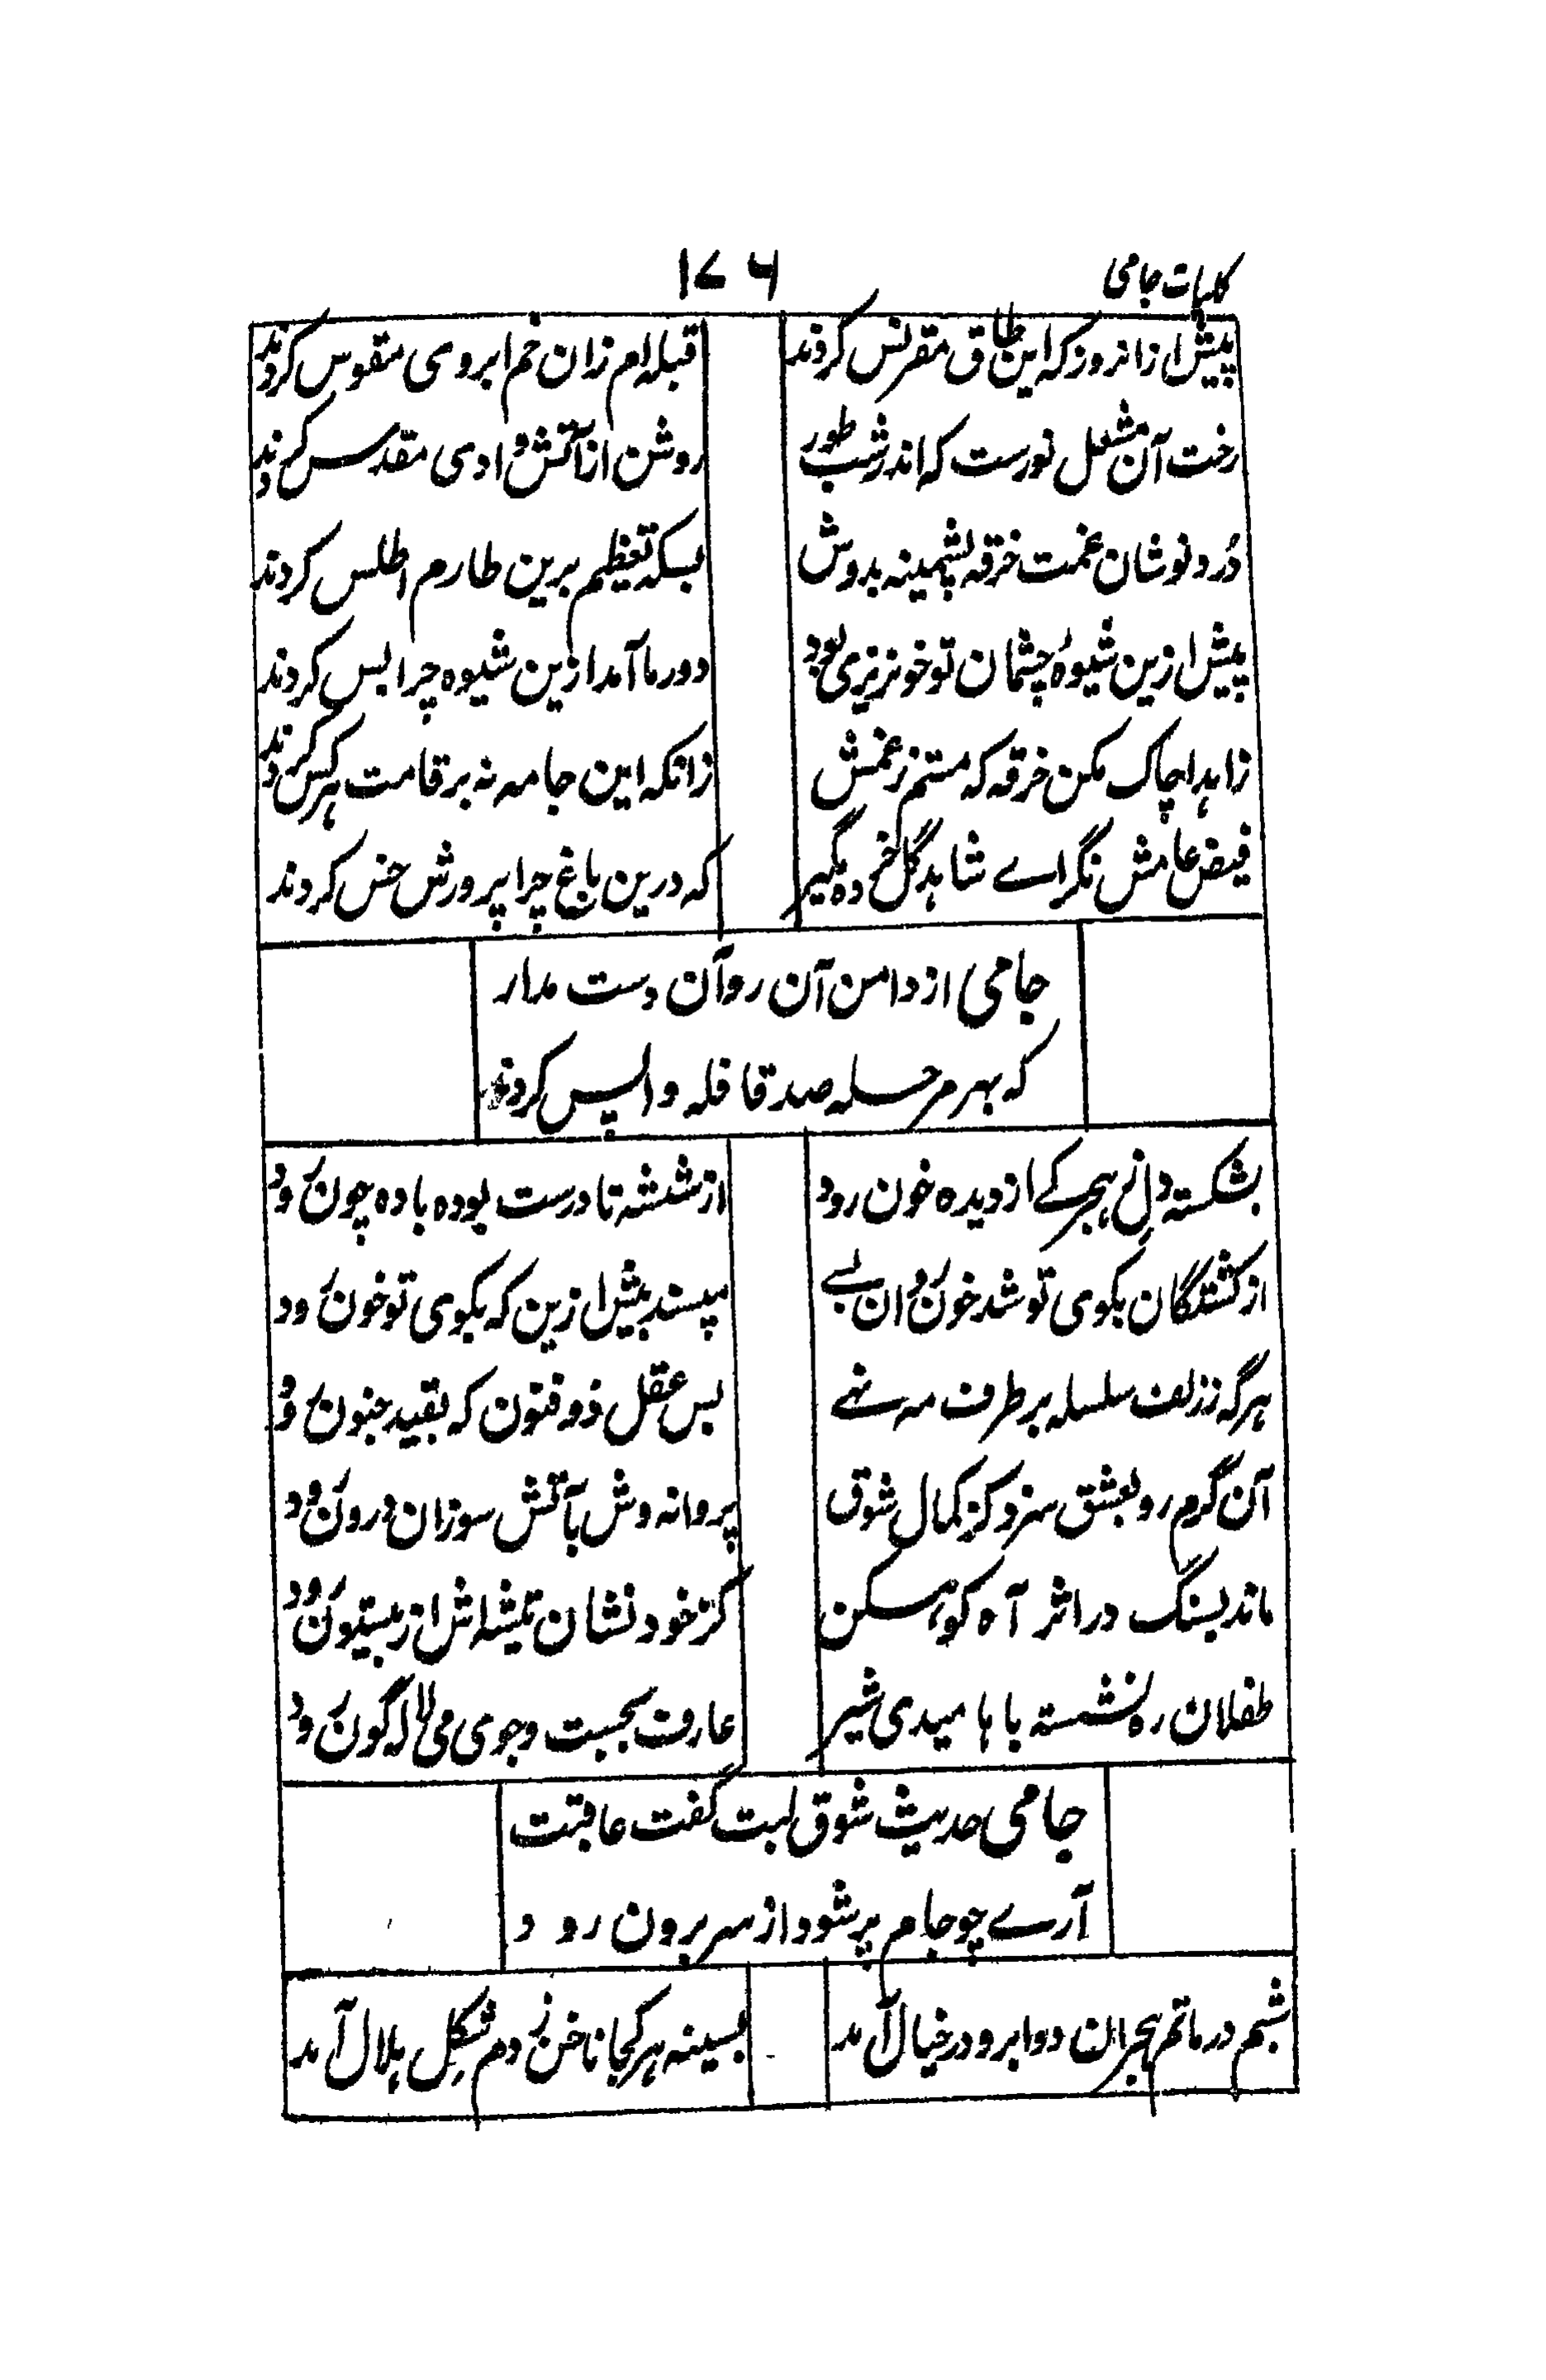 کلیات جامی
۱۷۶
پیش ازانروز که این طاق مقرنس کردند
قبله ام زان خم ابروی مقوس کردند
رخت آن مشعل نورست که اندر شب طور
روشن از آتش وادی مقدس کردند
دُرد نوشان غمت خرقه پشمینه بدوش
بسکه تعظیم برین طارم اطلس کردند
پیش ازین شیوهٔ چشمان تو خونریزی بود
دور ما آمد ازین شیوه چرا بس کردند
زاهدا چاک مکن خرقه که مستم زغمش
زانکه این جامه نه بر قامت هر کس کردند
فیض عامش نگر اے شاهد گل خرده مگیر
که درین باغ چرا پرورش خس کردند
جامی از دامن آن روآن دست مدار
که بهر مرحله صد قافله واپس کردند
بشکسته دل ز هجر کے از دیده خون رود
از شیشه تا درست بوده باده چون رود
از کشتگان بکوی تو شد خون روان بسے
مپسند بیش ازین که بکوی تو خون رود
هر گه ززلف سلسله بر طرف مه نهے
بس عقل ذو فنون که بقید جنون رود
آن گرم رو بعشق سزد کز کمال شوق
پروانه وش بآتش سوزان درون رود
ماند بسنگ در اثر آه کوهکن
کز خود نشان تیشه اش از بیستون رود
طفلان ره نشسته باها میدی شیر
عارف بجست وجوی می لاله گون رود
جامی حدیث شوق لبت گفت عاقبت
آرے چو جام پر شود از سر برون رود
شبم در ماتم هجران دو ابرو در خیال آمد
بسینه هر کجا ناخن زدم شکل هلال آمد